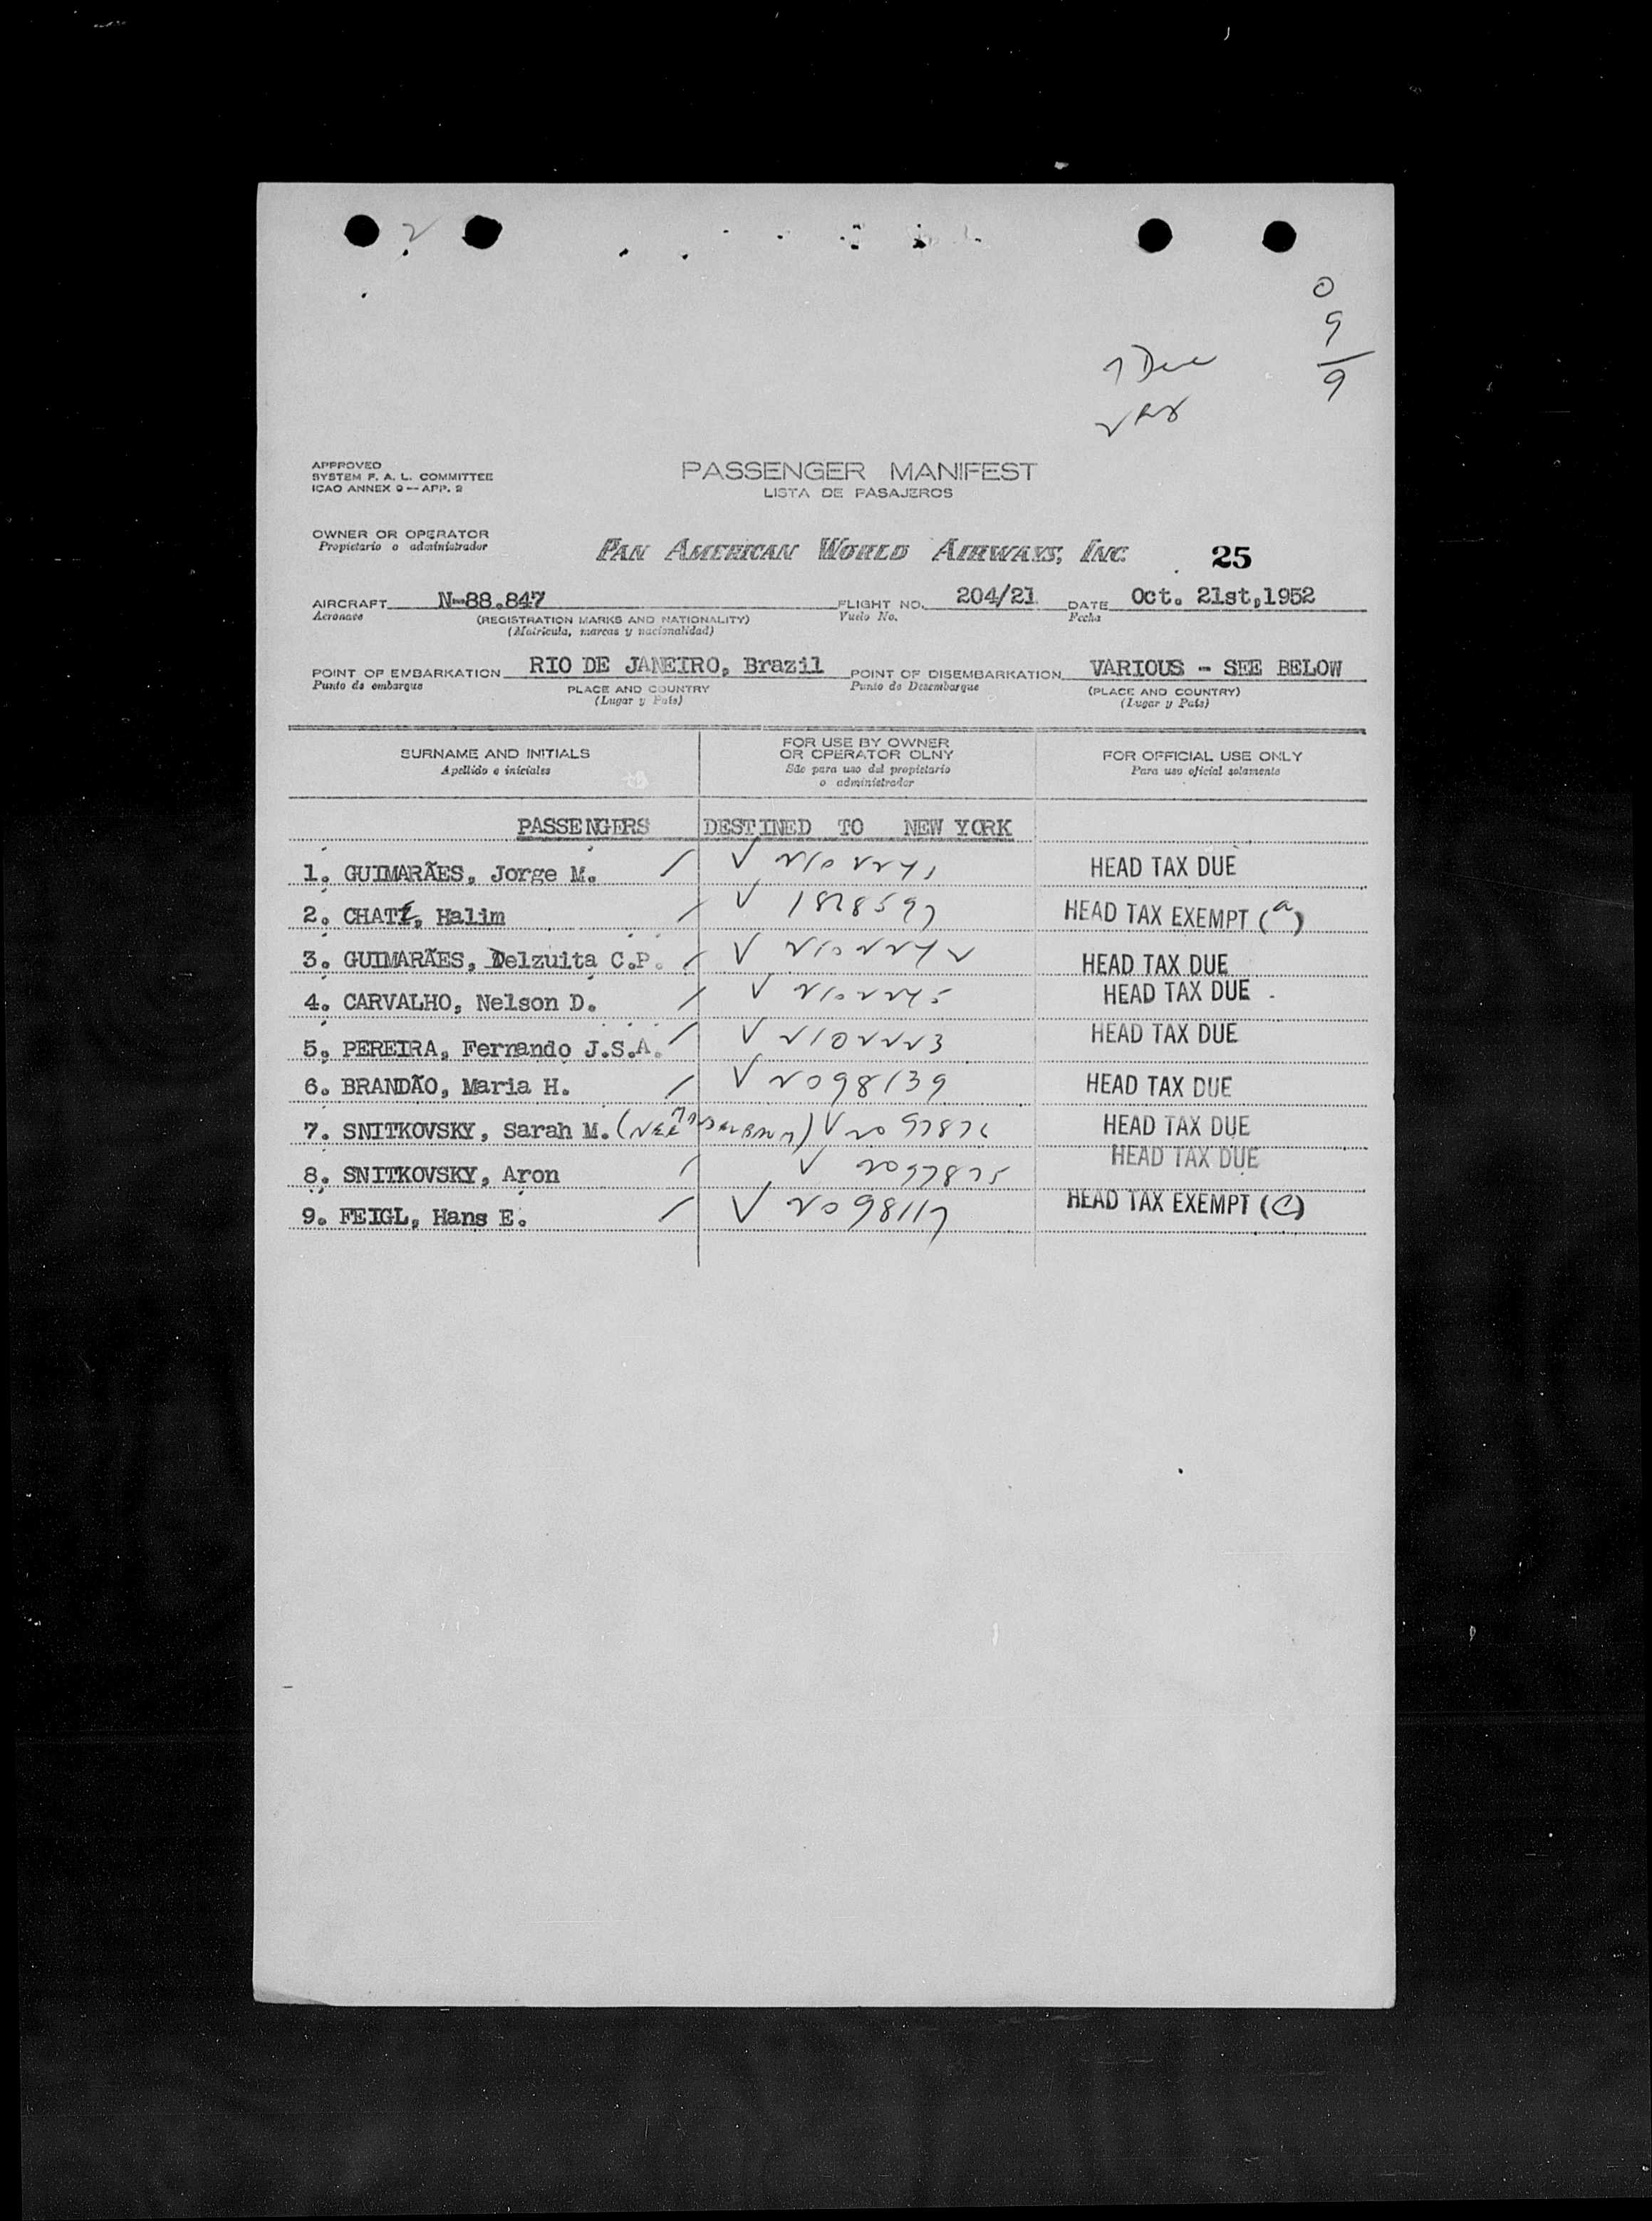 0
9
9
7 Due
2 Ax
APPROVED
SYSTEM F. A. L. COMMITTEE
ICAO ANNEX 9 — APP. 2
PASSENGER MANIFEST
LISTA DE PASAJEROS
OWNER OR OPERATOR
Propietario o administrador
PAN AMERICAN WORLD AIRWAYS, INC. 25
AIRCRAFT N-88.847 FLIGHT NO. 204/21 DATE Oct. 21st,1952
Aeronave (REGISTRATION MARKS AND NATIONALITY) Vuelo No. Fecha
(Matricula, marcas y nacionalidad)
POINT OF EMBARKATION RIO DE JANEIRO, Brazil POINT OF DISEMBARKATION VARIOUS - SEE BELOW
Punto de embarque PLACE AND COUNTRY Punto de Desembarque (PLACE AND COUNTRY)
(Lugar y País) (Lugar y País)
SURNAME AND INITIALS
Apellido e iniciales
FOR USE BY OWNER
OR OPERATOR OLNY
Sólo para uso del propietario
o administrador
FOR OFFICIAL USE ONLY
Para uso oficial solamente
PASSENGERS DESTINED TO NEW YORK
1. GUIMARÃES, Jorge M. / √ 2102241 HEAD TAX DUE
2. CHATI, Halim / √ 1828597 HEAD TAX EXEMPT (a)
3. GUIMARÃES, Delzuita C.P. / √ 2102242 HEAD TAX DUE
4. CARVALHO, Nelson D. / √ 2102245 HEAD TAX DUE
5. PEREIRA, Fernando J.S.A. / √ 2102223 HEAD TAX DUE
6. BRANDÃO, Maria H. / √ 2098139 HEAD TAX DUE
7. SNITKOVSKY, Sarah M. (NEE √ 2097876 HEAD TAX DUE
8. SNITKOVSKY, Aron / √ 2097875 HEAD TAX DUE
9. FEIGL, Hans E. / √ 2098117 HEAD TAX EXEMPT (C)